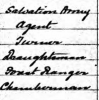 Salvation Army
Agent
Turner
Draughtsman
Forest Ranger
Chamberman